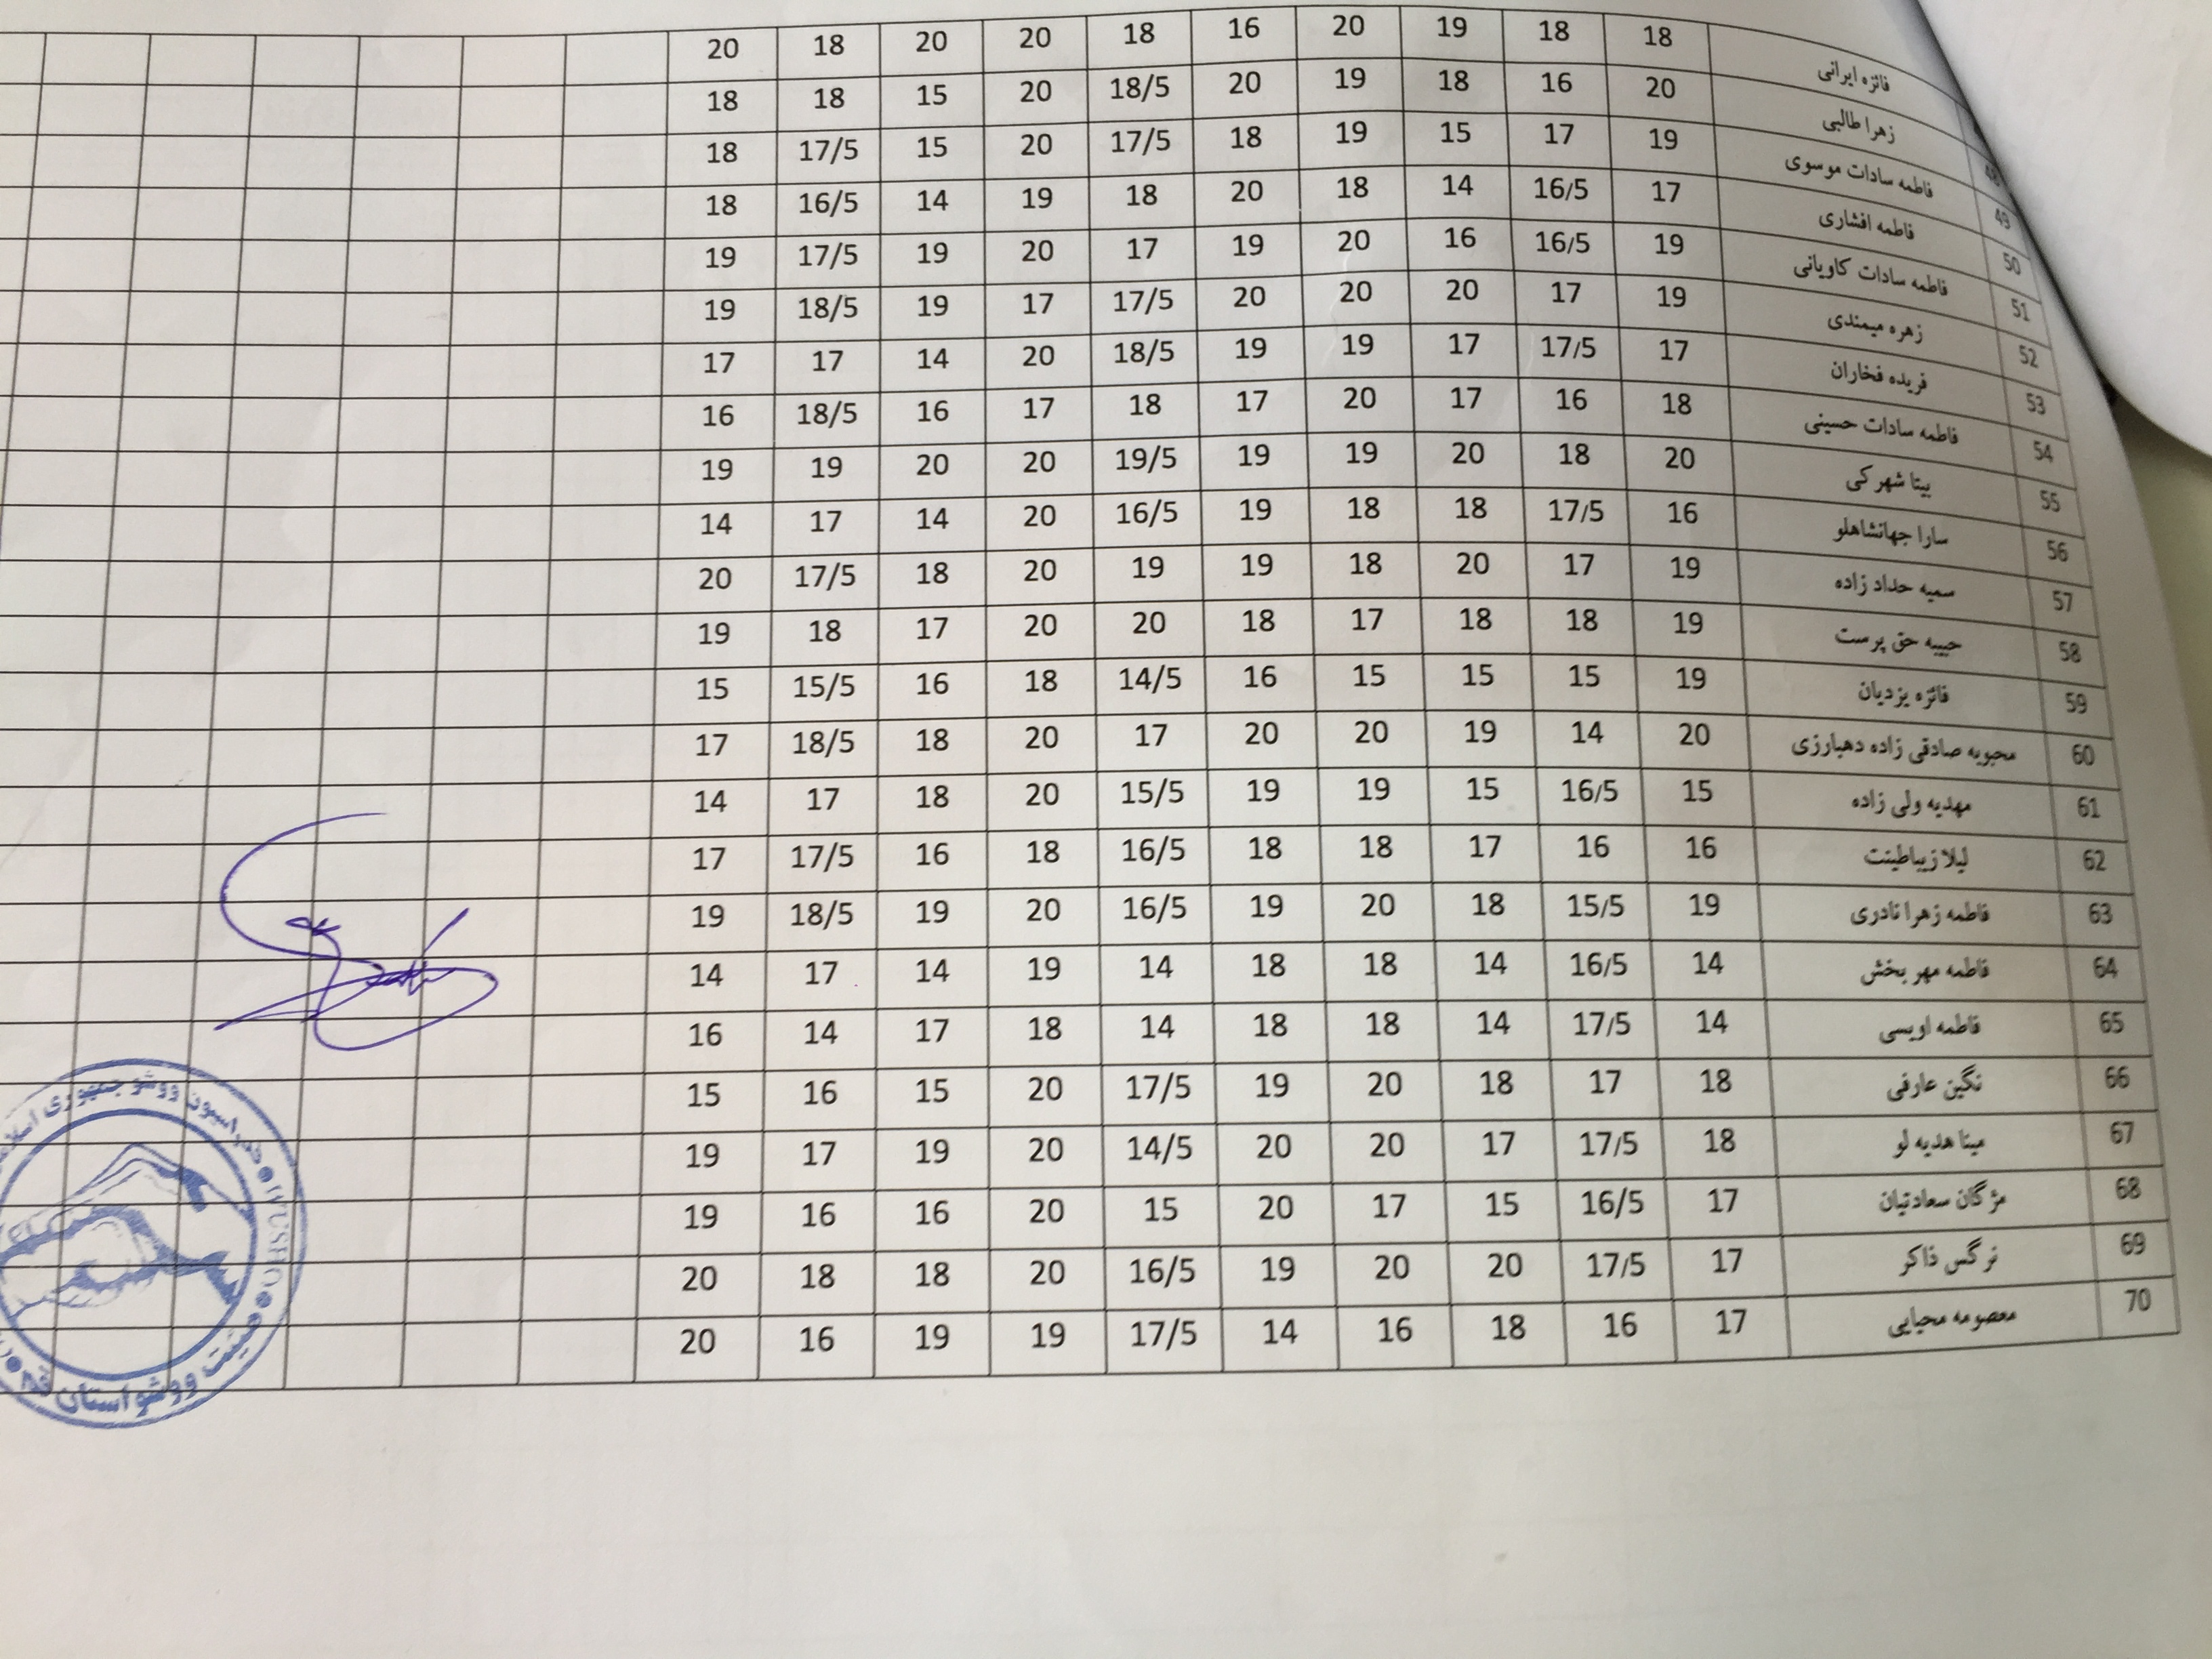 فائزه ایرانی 18 18 19 20 16 18 20 20 18 20
48 زهرا طالبی 20 16 18 19 20 18/5 20 15 18 18
49 فاطمه سادات موسوی 19 17 15 19 18 17/5 20 15 17/5 18
50 فاطمه افشاری 17 16/5 14 18 20 18 19 14 16/5 18
51 فاطمه سادات کاویانی 19 16/5 16 20 19 17 20 19 17/5 19
52 زهره میمندی 19 17 20 20 20 17/5 17 19 18/5 19
53 فریده فخاران 17 17/5 17 19 19 18/5 20 14 17 17
54 فاطمه سادات حسینی 18 16 17 20 17 18 17 16 18/5 16
55 بیتا شهرکی 20 18 20 19 19 19/5 20 20 19 19
56 سارا جهانشاهلو 16 17/5 18 18 19 16/5 20 14 17 14
57 سمیه حداد زاده 19 17 20 18 19 19 20 18 17/5 20
58 حبیبه حق پرست 19 18 18 17 18 20 20 17 18 19
59 فائزه یزدیان 19 15 15 15 16 14/5 18 16 15/5 15
60 محبوبه صادقی زاده دهبارزی 20 14 19 20 20 17 20 18 18/5 17
61 مهدیه ولی زاده 15 16/5 15 19 19 15/5 20 18 17 14
62 لیلا زیباطینت 16 16 17 18 18 16/5 18 16 17/5 17
63 فاطمه زهرا نادری 19 15/5 18 20 19 16/5 20 19 18/5 19
64 فاطمه مهر بخش 14 16/5 14 18 18 14 19 14 17 14
65 فاطمه اویسی 14 17/5 14 18 18 14 18 17 14 16
66 نگین عارفی 18 17 18 20 19 17/5 20 15 16 15
67 مینا هدیه لو 18 17/5 17 20 20 14/5 20 19 17 19
68 مژگان سعادتیان 17 16/5 15 17 20 15 20 16 16 19
69 نرگس ذاکر 17 17/5 20 20 19 16/5 20 18 18 20
70 معصومه محیایی 17 16 18 16 14 17/5 19 19 16 20
فدراسیون ووشو جمهوری
WUSHU
هیئت ووشو استان قم